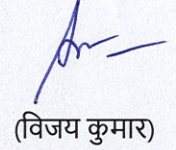 (विजय कुमार)